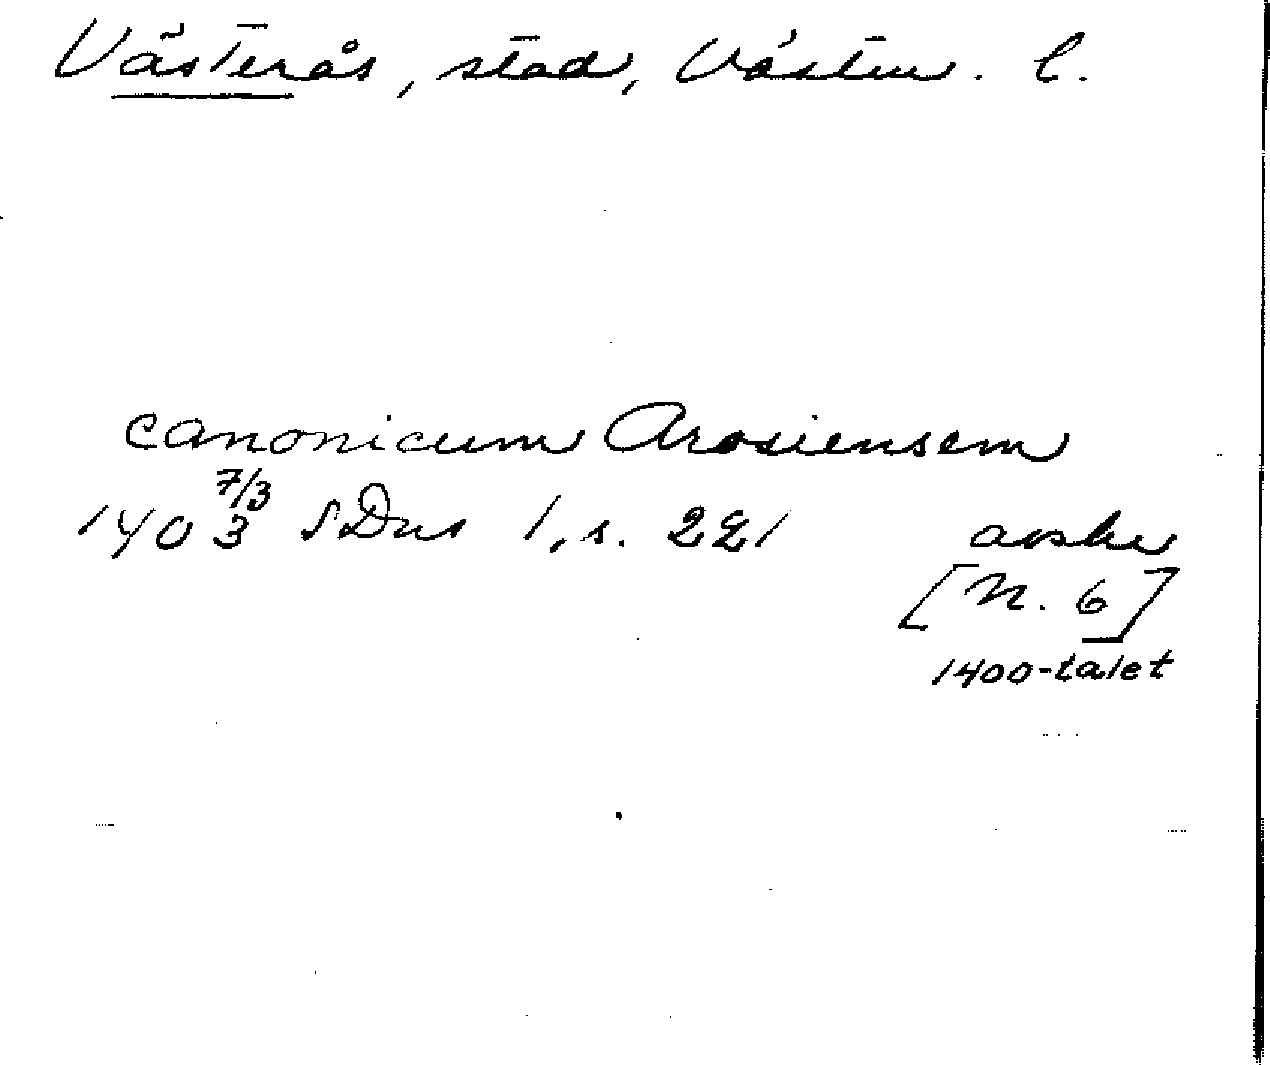 Västerås, stad, Västm. l.
canonicum Arosiensem
7/3
1403 SDns 1, s. 221 avskr
[N. 6]
1400-talet